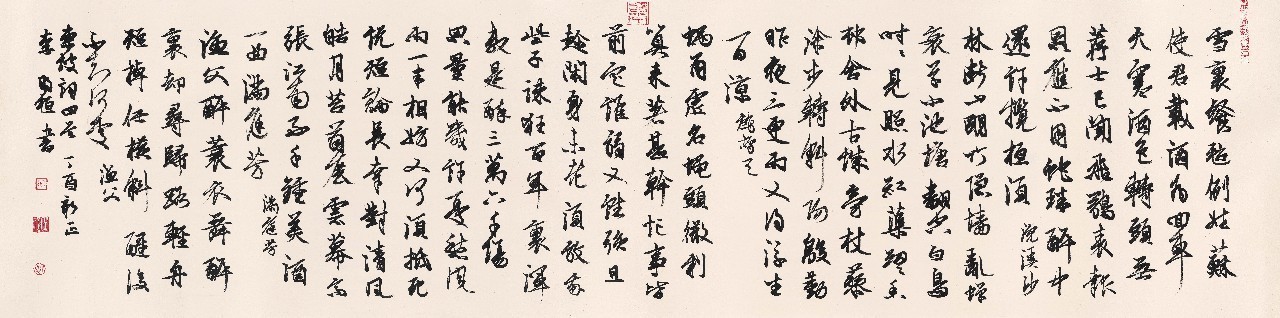 雪裏餐氈例姓蘇
使君載酒為回車
天寒酒色轉頭無
薦士已聞飛鶚表報
恩應不用蛇珠醉中
還許攬桓須 浣溪沙
林斷山明竹隱牆亂蟬
衰草小池塘翻空白鳥
時〻見照水紅蕖細〻香
村舍外古城旁杖藜
徐步轉斜陽殷勤
昨夜三更雨又得浮生
一日涼 鷓鴣天
蝸角虛名蠅頭微利
算來著甚幹忙事皆
前定誰弱又誰強且
趁閑身未老須放我
些子疎狂百年裏渾
教是醉三萬六千場
思量能幾許憂愁風
雨一半相妨又何須抵死
說短論長幸對清風
皓月苔茵展雲幕高
張江南好千鍾美酒
一曲滿庭芳 滿庭芳
漁父醉蓑衣舞醉
裏却尋歸路輕舟
短棹任橫斜醒後
不知何處 漁父
東坡詞四首 丁酉新正
李 書